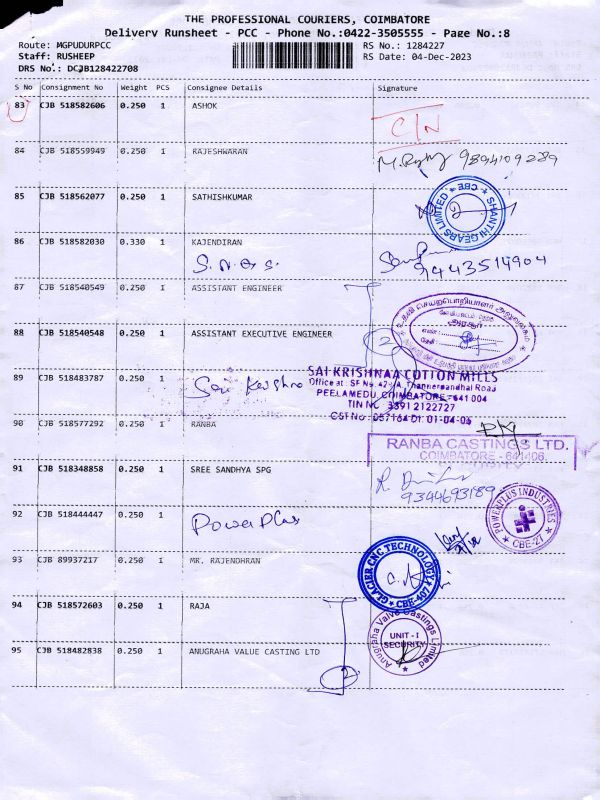 THE PROFESSIONAL COURIERS, COIMBATORE
Delivery Runsheet - PCC - Phone No.:0422-3505555 - Page No.:8
Route: MGPUDURPCC RS No.: 1284227
Staff: RUSHEEP RS Date: 04-Dec-2023
DRS No.: DCJB128422708
S No Consignment No Weight PCS Consignee Details Signature
83 CJB 518582606 0.250 1 ASHOK
C/N
84 CJB 518559949 0.250 1 RAJESHWARAN
9894109289
85 CJB 518562077 0.250 1 SATHISHKUMAR
SHANTHI GEARS LIMITED * CBE *
86 CJB 518582030 0.330 1 KAJENDIRAN
S.N.G.S.
9443514904
87 CJB 518540549 0.250 1 ASSISTANT ENGINEER
88 CJB 518540548 0.250 1 ASSISTANT EXECUTIVE ENGINEER
2
89 CJB 518483787 0.250 1 Sai Krishna
SAI KRISHNAA COTTON MILLS
Office at : SF No. Thanneerpandhal Road
PEELAMEDU, COIMBATORE - 641 004
90 CJB 518577292 0.250 1 RANBA
RANBA CASTINGS LTD.
COIMBATORE - 641406
91 CJB 518348858 0.250 1 SREE SANDHYA SPG
9344693189
92 CJB 518444447 0.250 1 Powerplus
POWERPLUS INDUSTRIES * CBE-27 *
93 CJB 89937217 0.250 1 MR. RAJENDHRAN
GLACIER CNC TECHNOLOGY * CBE-407 *
94 CJB 518572603 0.250 1 RAJA
95 CJB 518482838 0.250 1 ANUGRAHA VALUE CASTING LTD
Anugraha Valve Castings Limited
UNIT - I
SECURITY
2